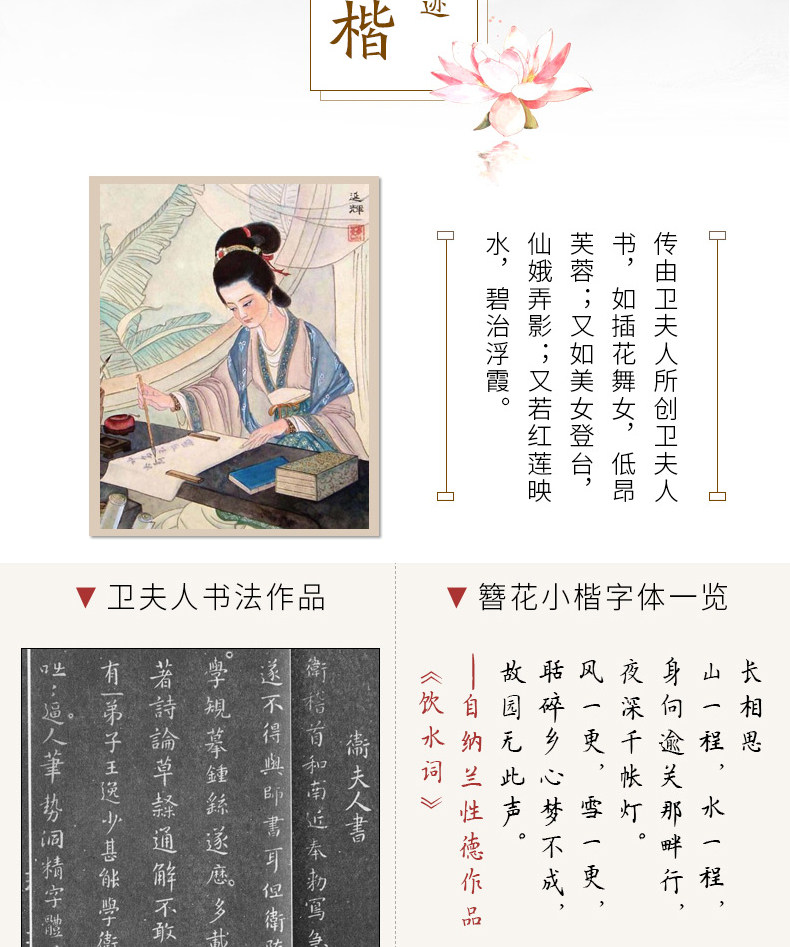 楷
迹
延輝
传由卫夫人所创卫夫人
书，如插花舞女，低昂
芙蓉；又如美女登台，
仙娥弄影；又若红莲映
水，碧治浮霞。
▼卫夫人书法作品
衞夫人書
衞稽首和南近奉勅寫急
遂不得與師書耳但衞隨
學規摹鍾繇遂歷。多載
著詩論草隸通解不敢
有一弟子王逸少甚能學衞
咄咄逼人筆勢洞精字體
▼簪花小楷字体一览
长相思
山一程，水一程，
身向逾关那畔行，
夜深千帐灯。
风一更，雪一更，
聒碎乡心梦不成，
故园无此声。
—自纳兰性德作品
《饮水词》